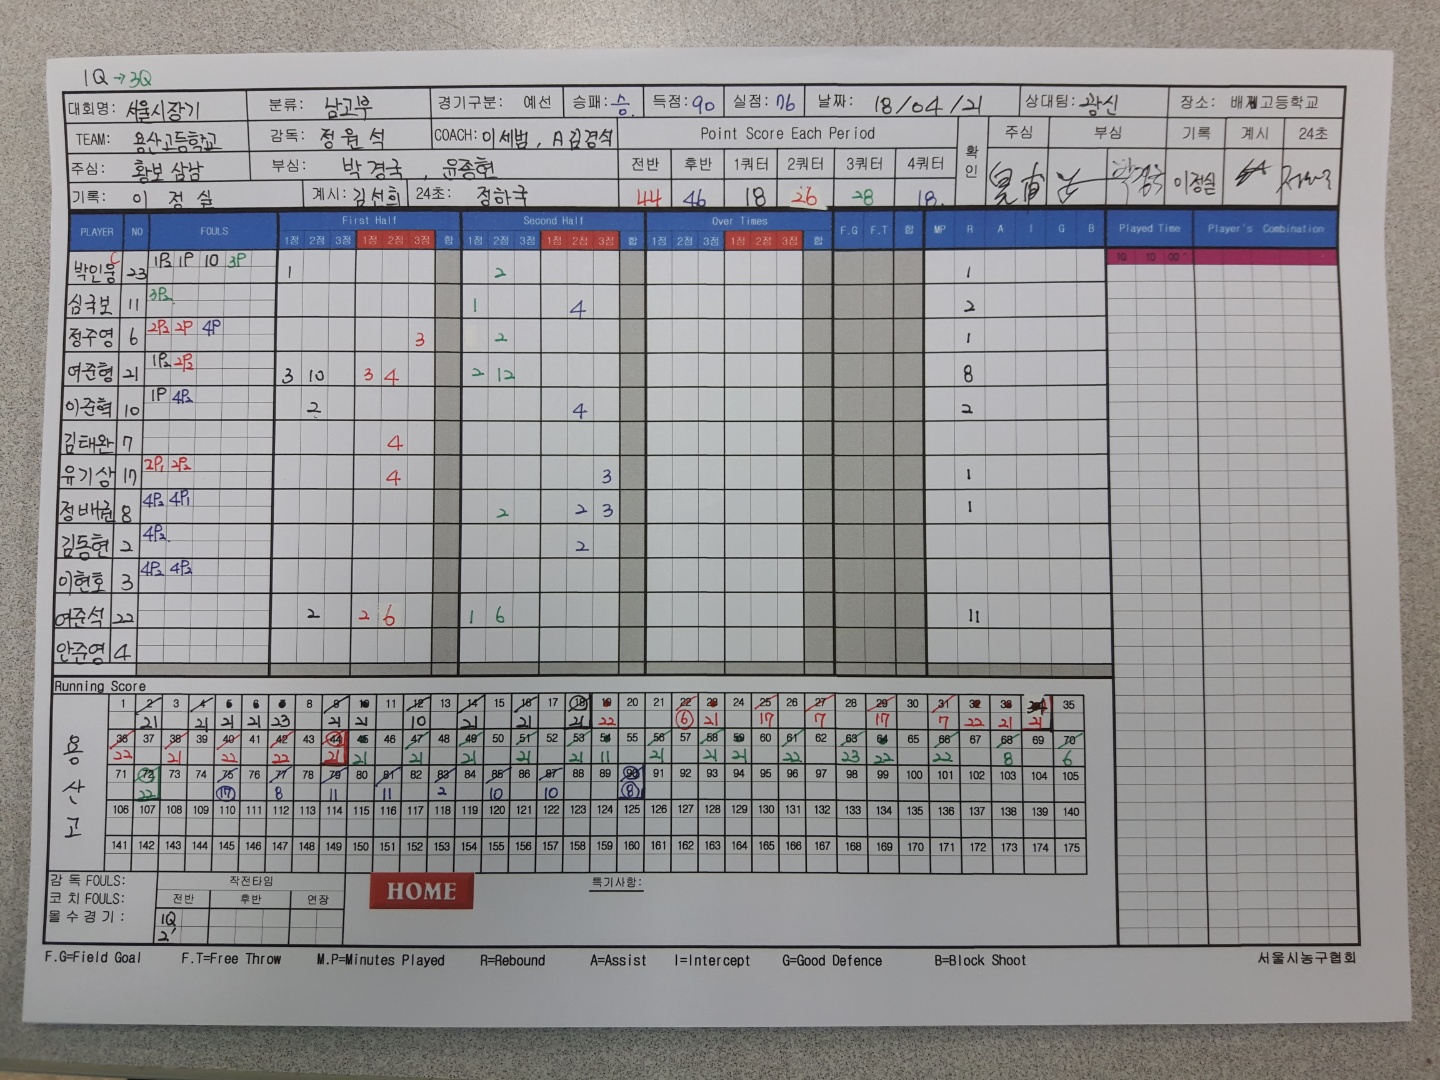 1Q→3Q
대회명: 서울시장기 분류: 남고부 경기구분: 예선 승패: 승. 득점: 90 실점: 76 날짜: 18/04/21 상대팀: 광신 장소: 배재고등학교
TEAM: 용산고등학교 감독: 정원석 COACH: 이세범, A김경석 Point Score Each Period 확인 주심 부심 기록 계시 24초
주심: 황보삼남 부심: 박경국, 윤종현 전반 후반 1쿼터 2쿼터 3쿼터 4쿼터
기록: 이정실 계시: 김선희 24초: 정하국 44 46 18 26 28 18. 이정실
PLAYER NO FOULS First Half Second Half Over Times F.G F.T 합 MP R A I G B Played Time Player's Combination
1점 2점 3점 1점 2점 3점 합 1점 2점 3점 1점 2점 3점 합 1점 2점 3점 1점 2점 3점 합
10 10 00
박인웅 C 23 1P2 1P 10 3P 1 2 1
심국보 11 3P2 1 4 2
정주영 6 2P2 2P 4P 3 2 1
여준형 21 1P2 2P2 3 10 3 4 2 12 8
이준혁 10 1P 4P2 2 4 2
김태완 7 4
유기상 17 2P1 2P2 4 3 1
정배권 8 4P2 4P1 2 2 3 1
김동현 2 4P2 2
이현호 3 4P2 4P2
여준석 22 2 2 6 1 6 11
안준영 4
Running Score
용산고
1 2 3 4 5 6 7 8 9 10 11 12 13 14 15 16 17 18 19 20 21 22 23 24 25 26 27 28 29 30 31 32 33 34 35
21 21 21 21 23 21 21 10 21 21 21 22 6 21 17 7 17 7 22 21 21
36 37 38 39 40 41 42 43 44 45 46 47 48 49 50 51 52 53 54 55 56 57 58 59 60 61 62 63 64 65 66 67 68 69 70
22 21 22 22 21 21 21 21 21 21 11 21 21 21 22 23 22 22 8 6
71 72 73 74 75 76 77 78 79 80 81 82 83 84 85 86 87 88 89 90 91 92 93 94 95 96 97 98 99 100 101 102 103 104 105
22 17 8 11 11 2 10 10 8
106 107 108 109 110 111 112 113 114 115 116 117 118 119 120 121 122 123 124 125 126 127 128 129 130 131 132 133 134 135 136 137 138 139 140
141 142 143 144 145 146 147 148 149 150 151 152 153 154 155 156 157 158 159 160 161 162 163 164 165 166 167 168 169 170 171 172 173 174 175
감독 FOULS: 작전타임 HOME 특기사항:
코치 FOULS: 전반 후반 연장
몰수경기: 1Q
2'
F.G=Field Goal F.T=Free Throw M.P=Minutes Played R=Rebound A=Assist I=Intercept G=Good Defence B=Block Shoot 서울시농구협회